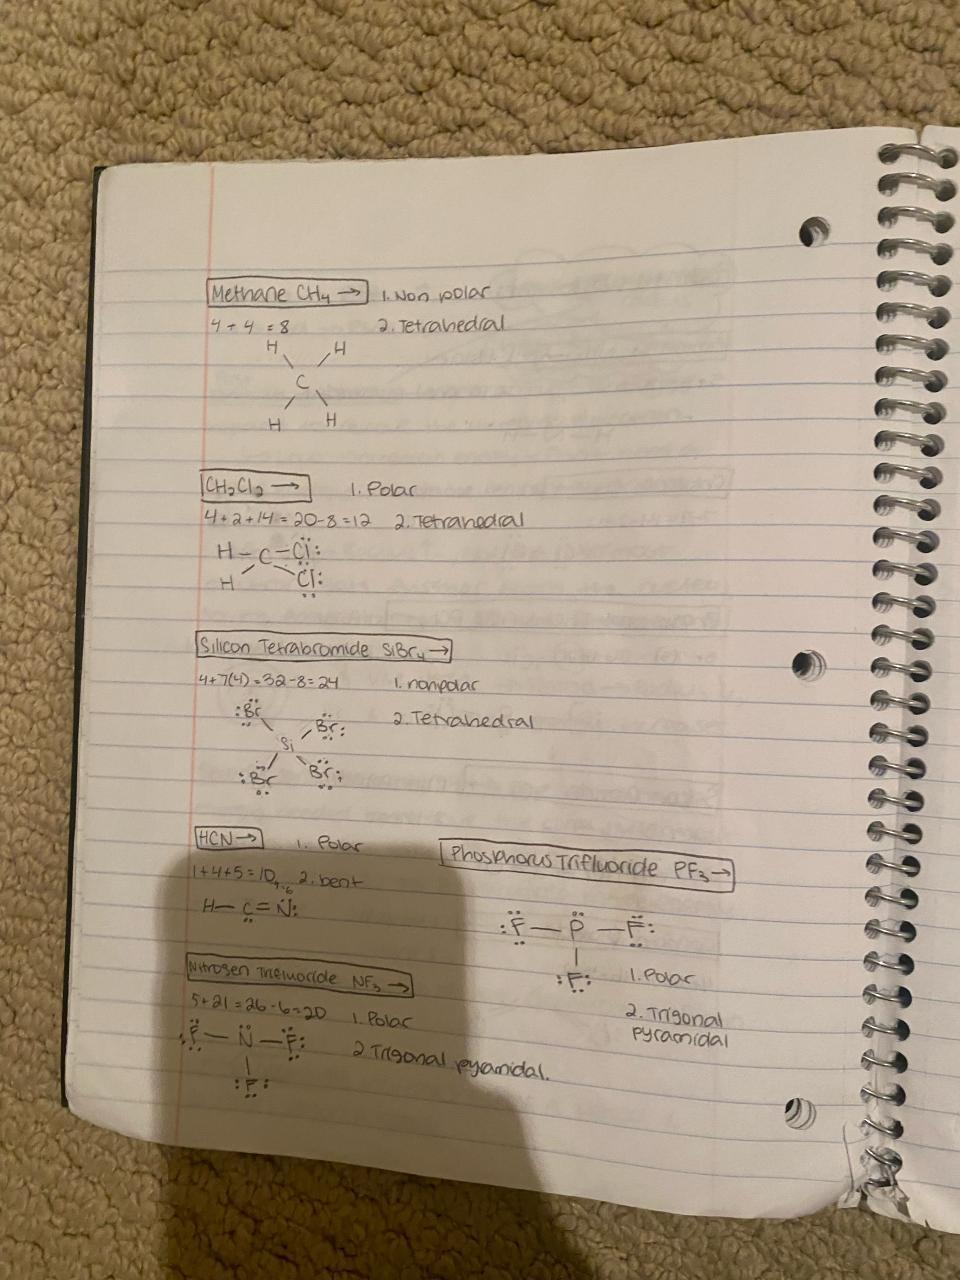 Methane CH₄ → 1. Non polar
4 + 4 = 8 2. Tetrahedral
H H
C
H H
CH₂Cl₂ → 1. Polar
4 + 2 + 14 = 20 - 8 = 12 2. Tetrahedral
H - C - Cl:
H Cl:
Silicon Tetrabromide SiBr₄ →
4 + 7(4) = 32 - 8 = 24 1. nonpolar
:Br Br: 2. Tetrahedral
Si
:Br Br:
HCN → 1. Polar
1 + 4 + 5 = 10 2. bent
H - C = N:
Phosphorus Trifluoride PF₃ →
:F - P - F:
:F:
1. Polar
2. Trigonal
pyramidal
NF₃ →
5 + 21 = 26 - 6 = 20 1. Polar
:F - N - F: 2 Trigonal pyamidal.
:F: